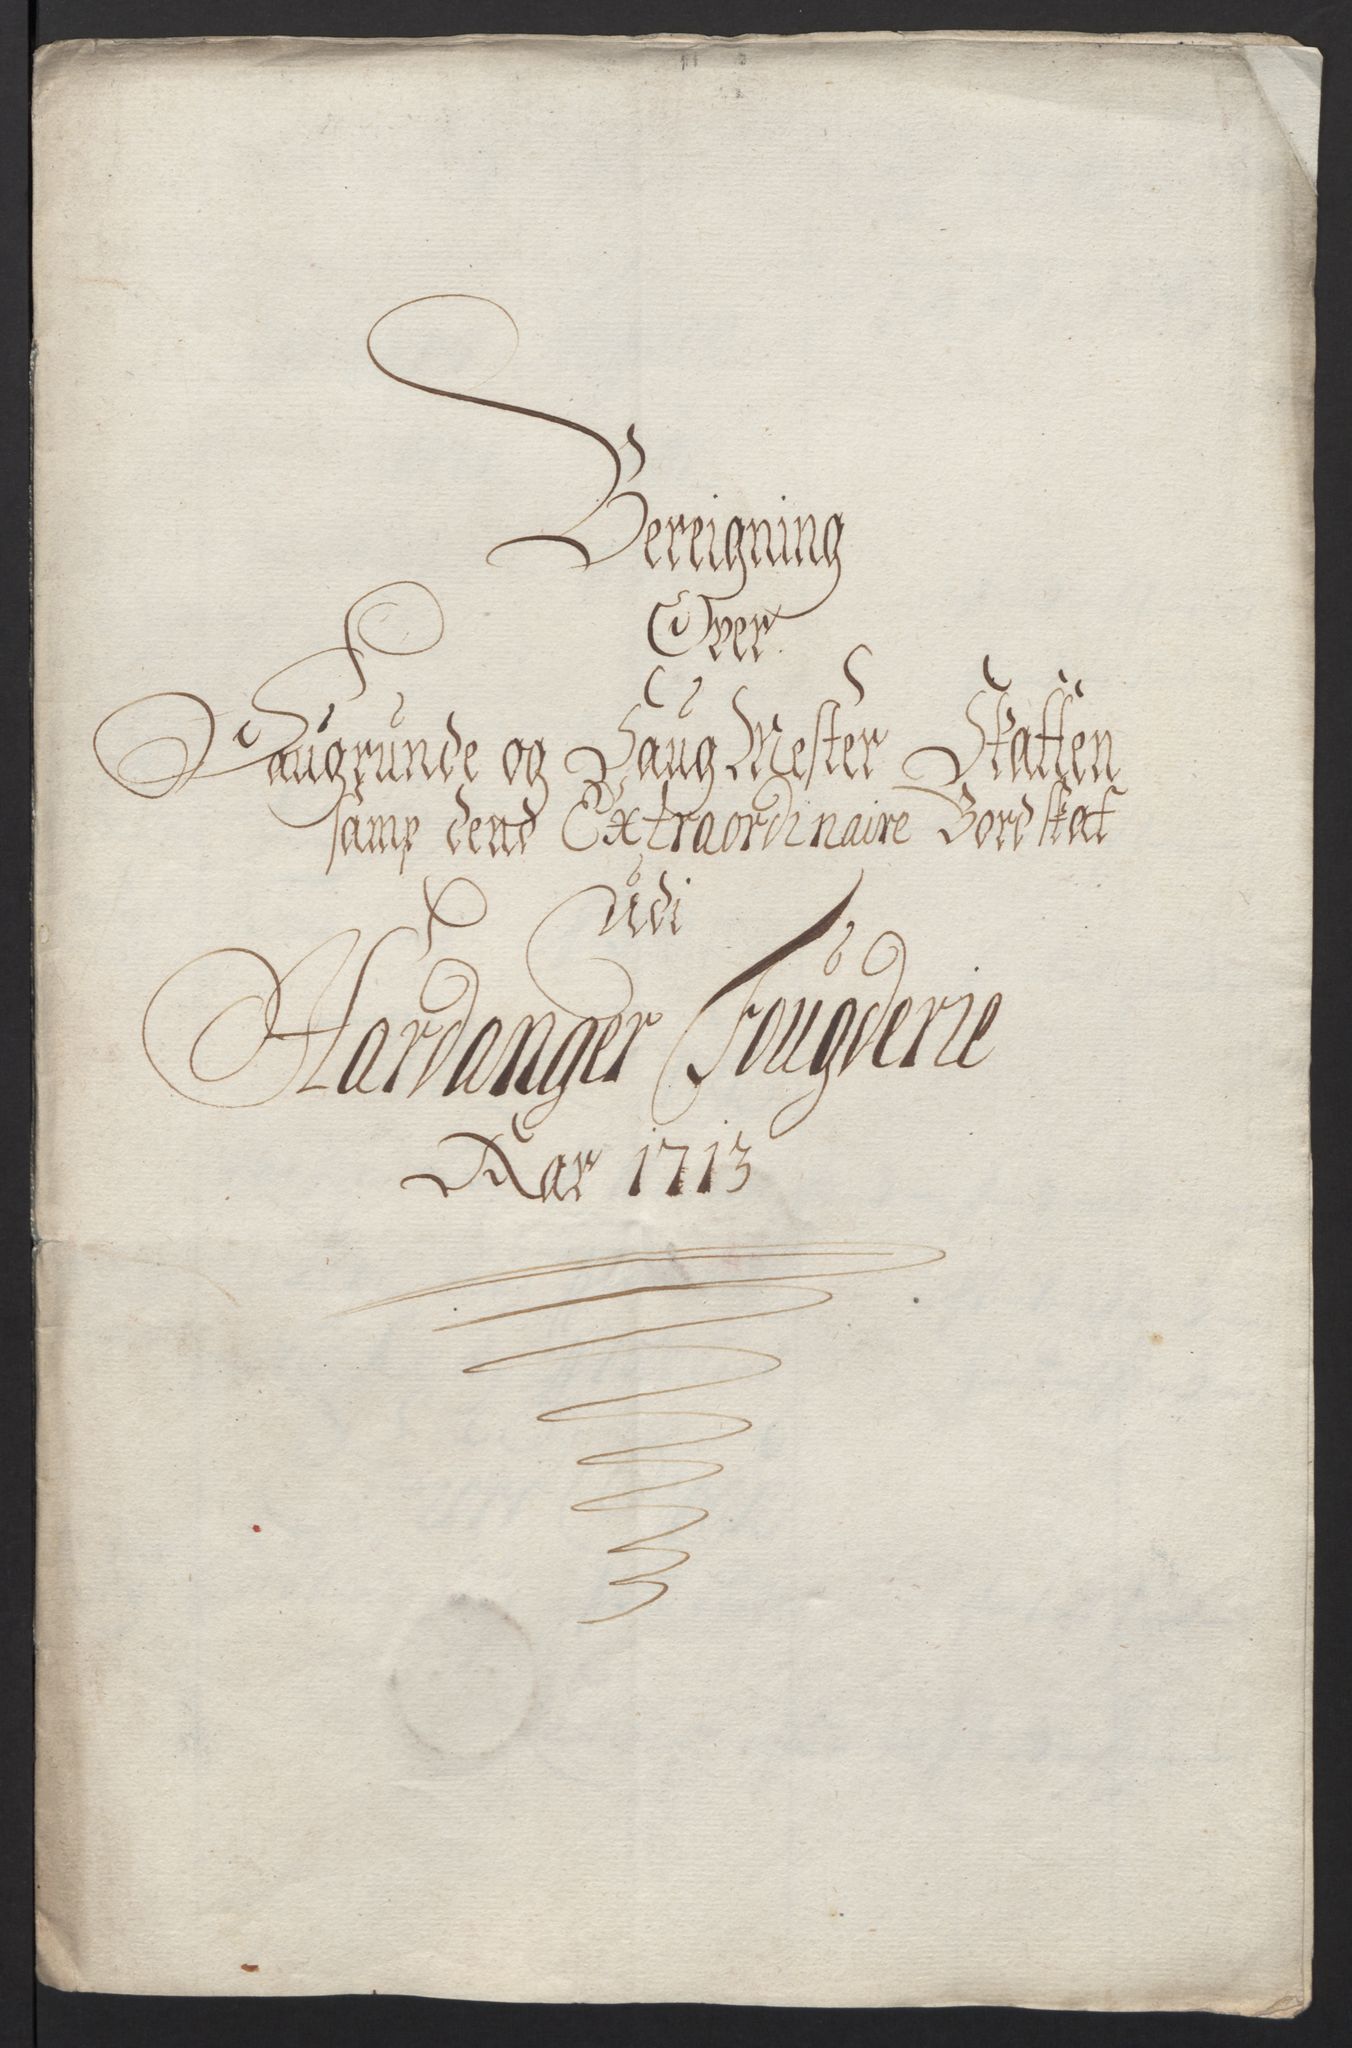 Bereigning
Over
Saugrunde og Saug Mester Skatten
samp dend Extraordinaire Bord skat
udi
Hardanger Fougderie
Aar 1713